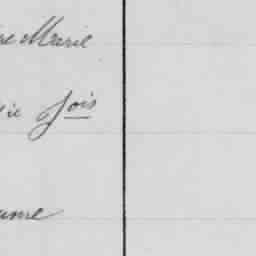 re Marie
ie Jois
ume